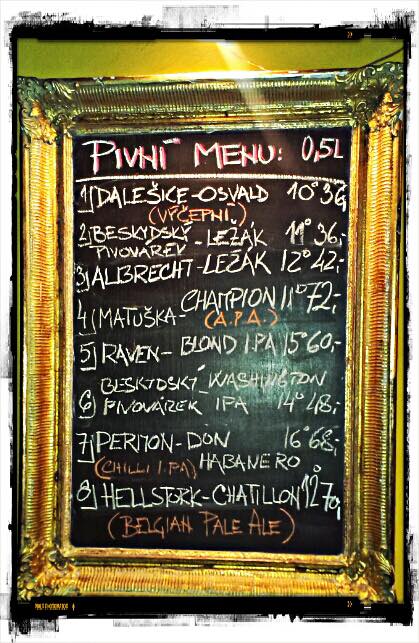 PIVNÍ MENU: 0,5L
1) DALEŠICE-OSVALD 10° 36,-
(VÝČEPNÍ)
2) BESKYDSKÝ PIVOVÁREK - LEŽÁK 11° 36,-
3) ALBRECHT-LEŽÁK 12° 42,-
4) MATUŠKA- CHAMPION 11° 72,-
(A.P.A.)
5) RAVEN- BLOND I.PA 15° 60,-
6) BESKYDSKÝ PIVOVÁREK WASHINGTON IPA 14° 48,-
7) PERMON- DON HABANERO 16° 68,-
(CHILLI I.PA)
8) HELLSTORK-CHATILLON 12° 70,-
(BELGIAN PALE ALE)